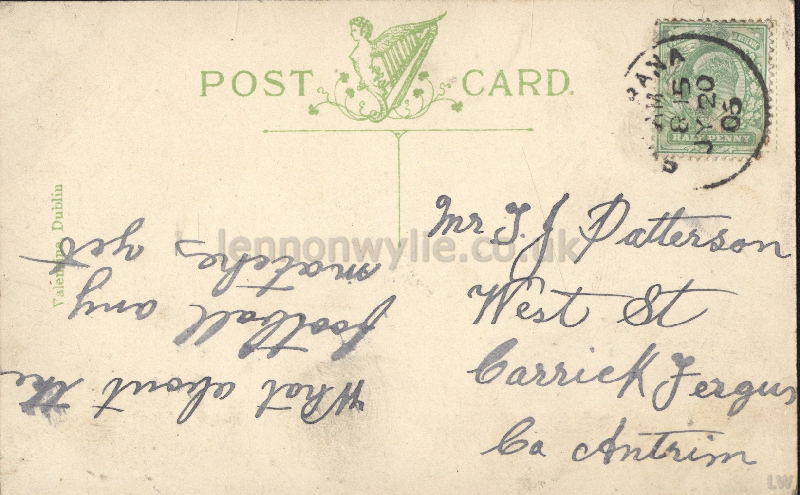 POST CARD.
Valentine, Dublin
HALFPENNY
8 15 AM
JY 20
05
Mr T. J Patterson
West St
Carrick Fergus
Co Antrim
What about the
football any
matches yet
lennonwylie.co.uk
LW